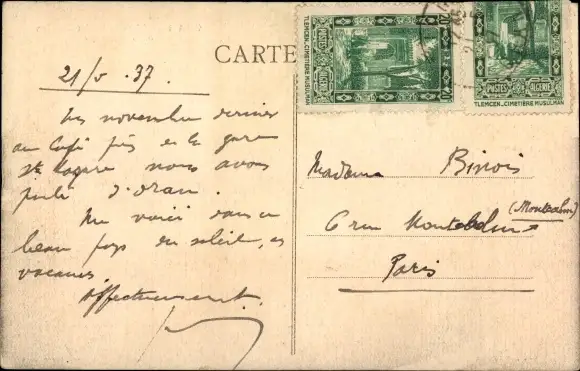 CARTE
TLEMCEN_CIMETIÈRE MUSULMAN
POSTES ALGERIE
POSTES ALGERIE
TLEMCEN_CIMETIÈRE MUSULMAN
21/5.37.
novembre dernier
au Café près de la gare
St Lazare nous avons
parlé d'Oran.
Me voici dans ce
beau pays du soleil, en
vacances.
Affectueusement.
Madame Binois
(Montcalm)
6 rue
Paris